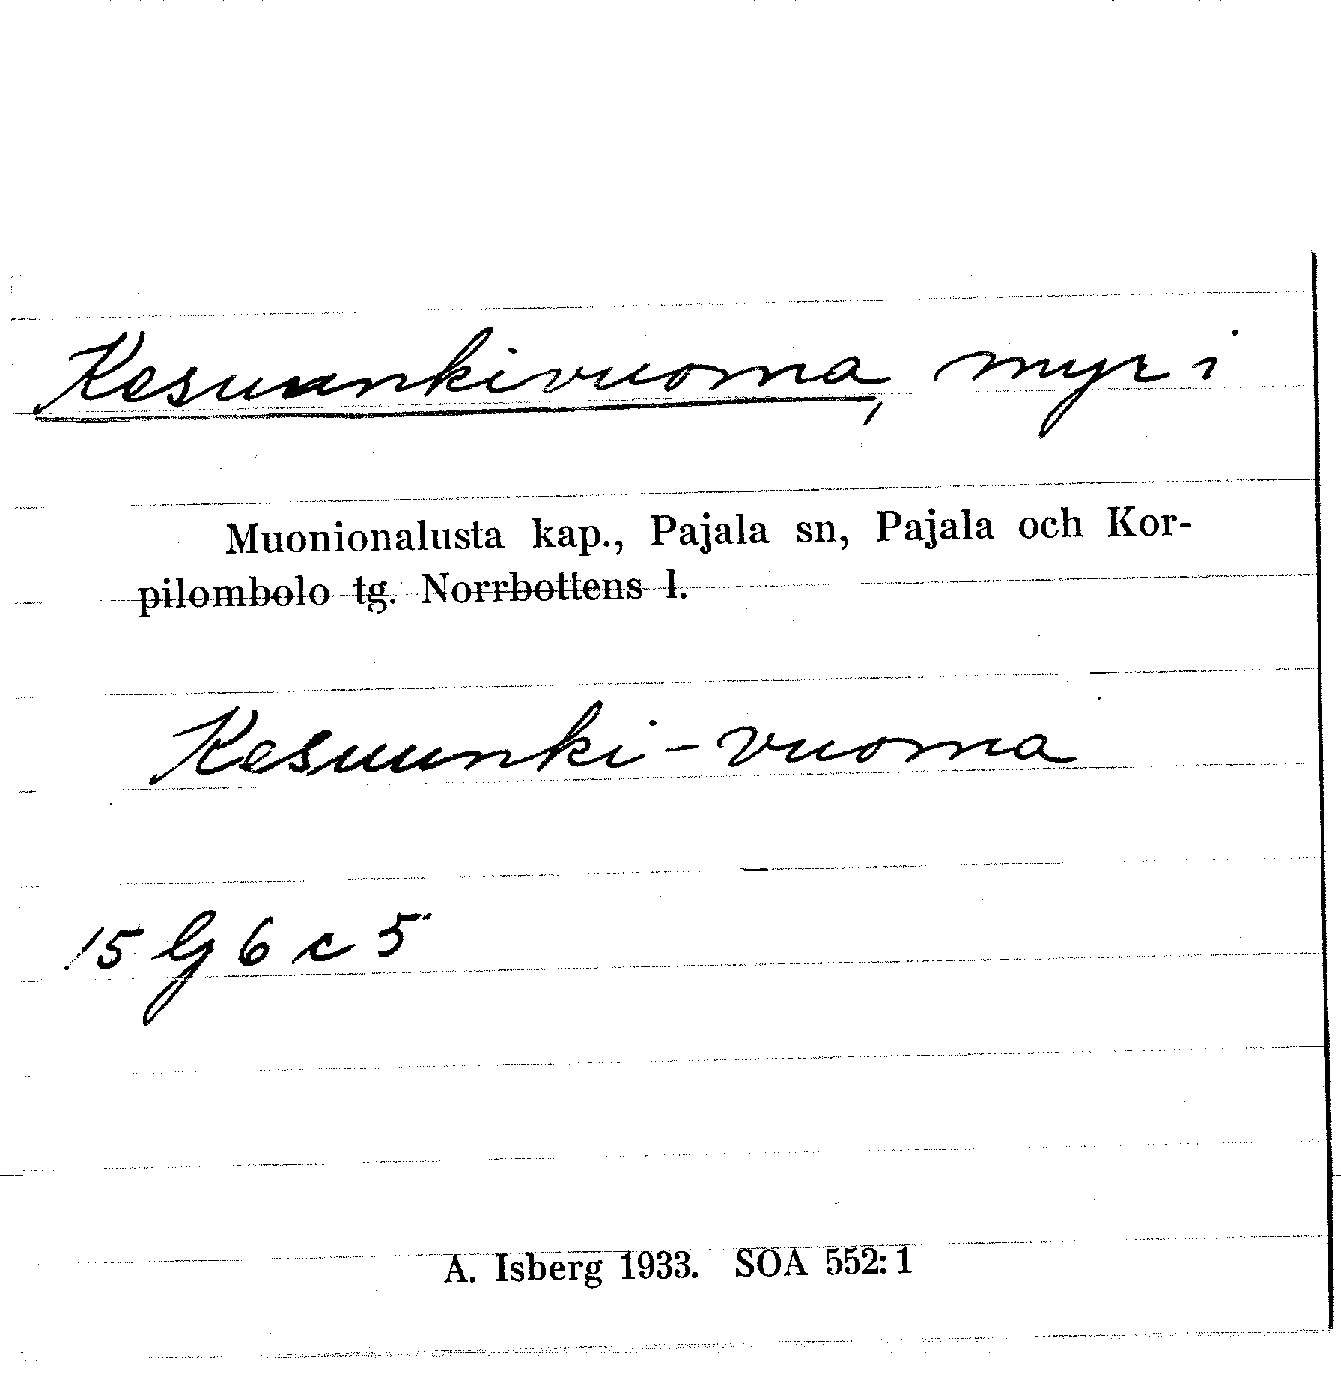 Kesuunkivuoma, myr i
Muonionalusta kap., Pajala sn, Pajala och Kor-
pilombolo tg. Norrbottens l.
Kesuunki-vuoma
15 G 6 c 5
A. Isberg 1933. SOA 552:1